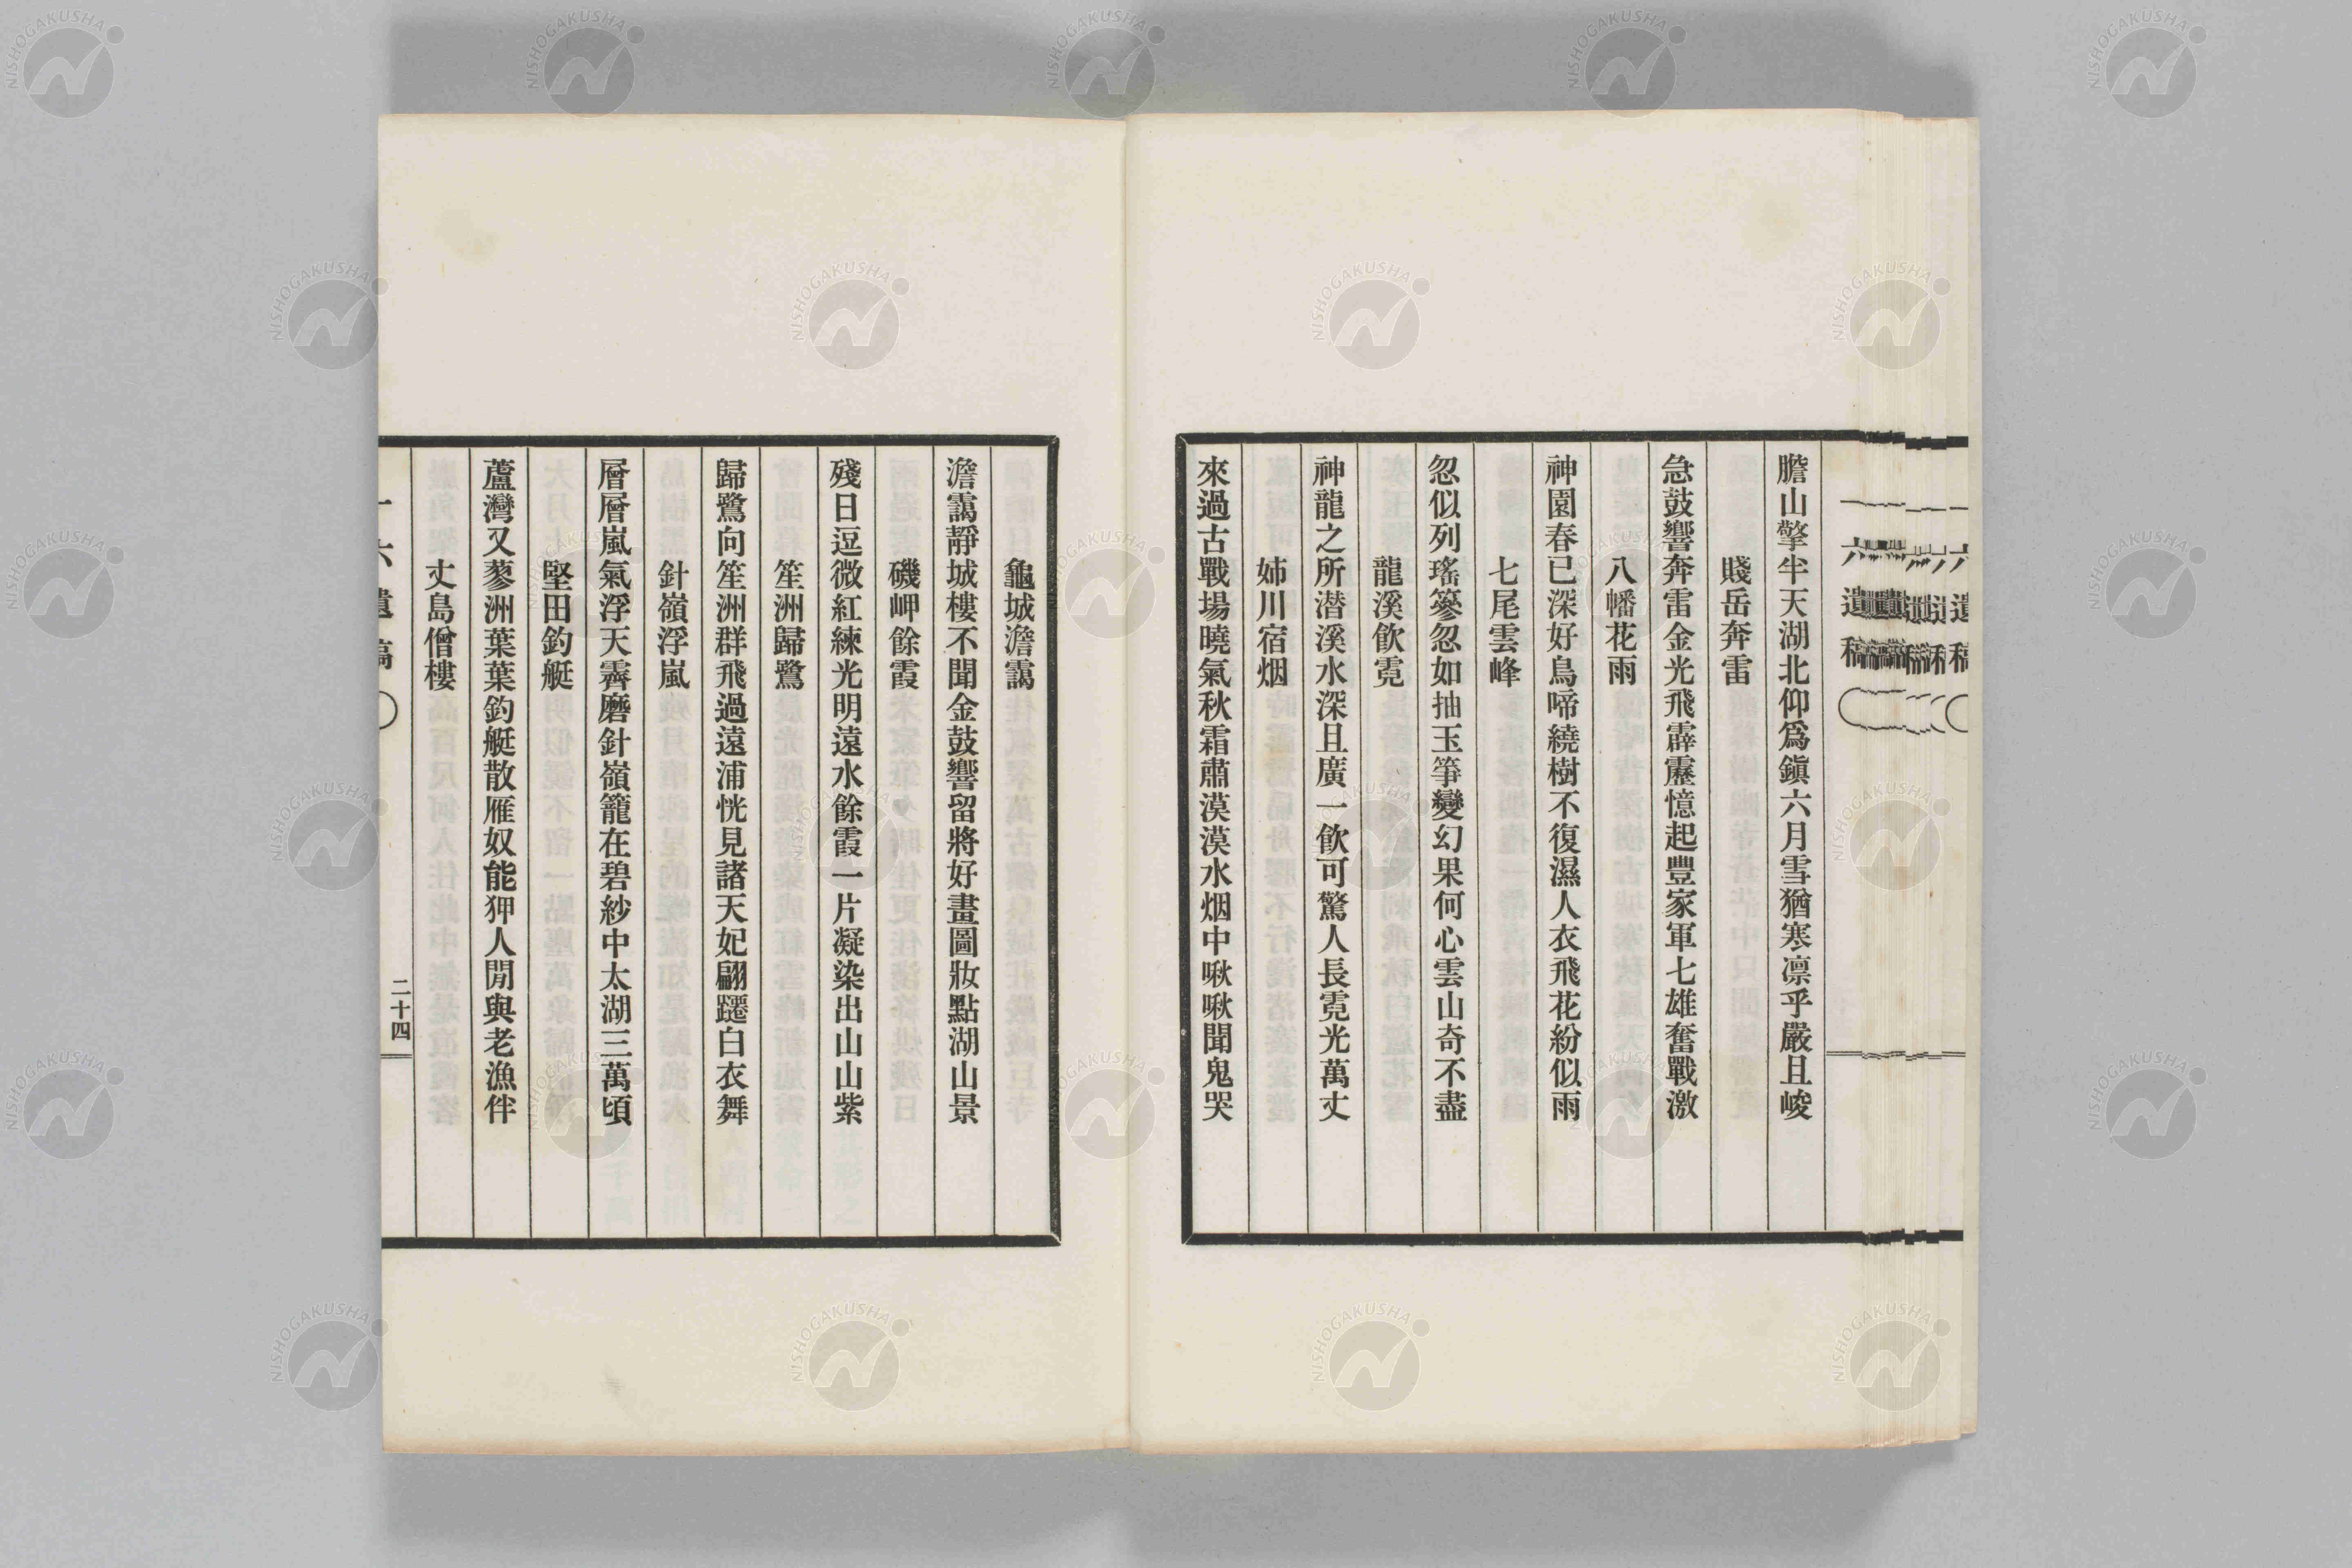 膽山擎半天湖北仰爲鎭六月雪猶寒凛乎嚴且峻
賤岳奔雷
急鼓響奔雷金光飛霹靂憶起豐家軍七雄奮戰激
八幡花雨
神園春已深好鳥啼繞樹不復濕人衣飛花紛似雨
七尾雲峰
忽似列瑤篸忽如抽玉筝變幻果何心雲山奇不盡
龍溪飮霓
神龍之所潜溪水深且廣一飮可驚人長霓光萬丈
姉川宿烟
來過古戰場曉氣秋霜肅漠漠水烟中啾啾聞鬼哭
龜城澹靄
澹靄靜城樓不聞金鼓響留將好畫圖妝點湖山景
磯岬餘霞
殘日逗微紅練光明遠水餘霞一片凝染出山山紫
笙洲歸鷺
歸鷺向笙洲群飛過遠浦恍見諸天妃翩躚白衣舞
針嶺浮嵐
層層嵐氣浮天霽磨針嶺籠在碧紗中太湖三萬頃
堅田釣艇
蘆灣又蓼洲葉葉釣艇散雁奴能狎人閒與老漁伴
丈島僧樓
二十四
六遺稿
NISHOGAKUSHA